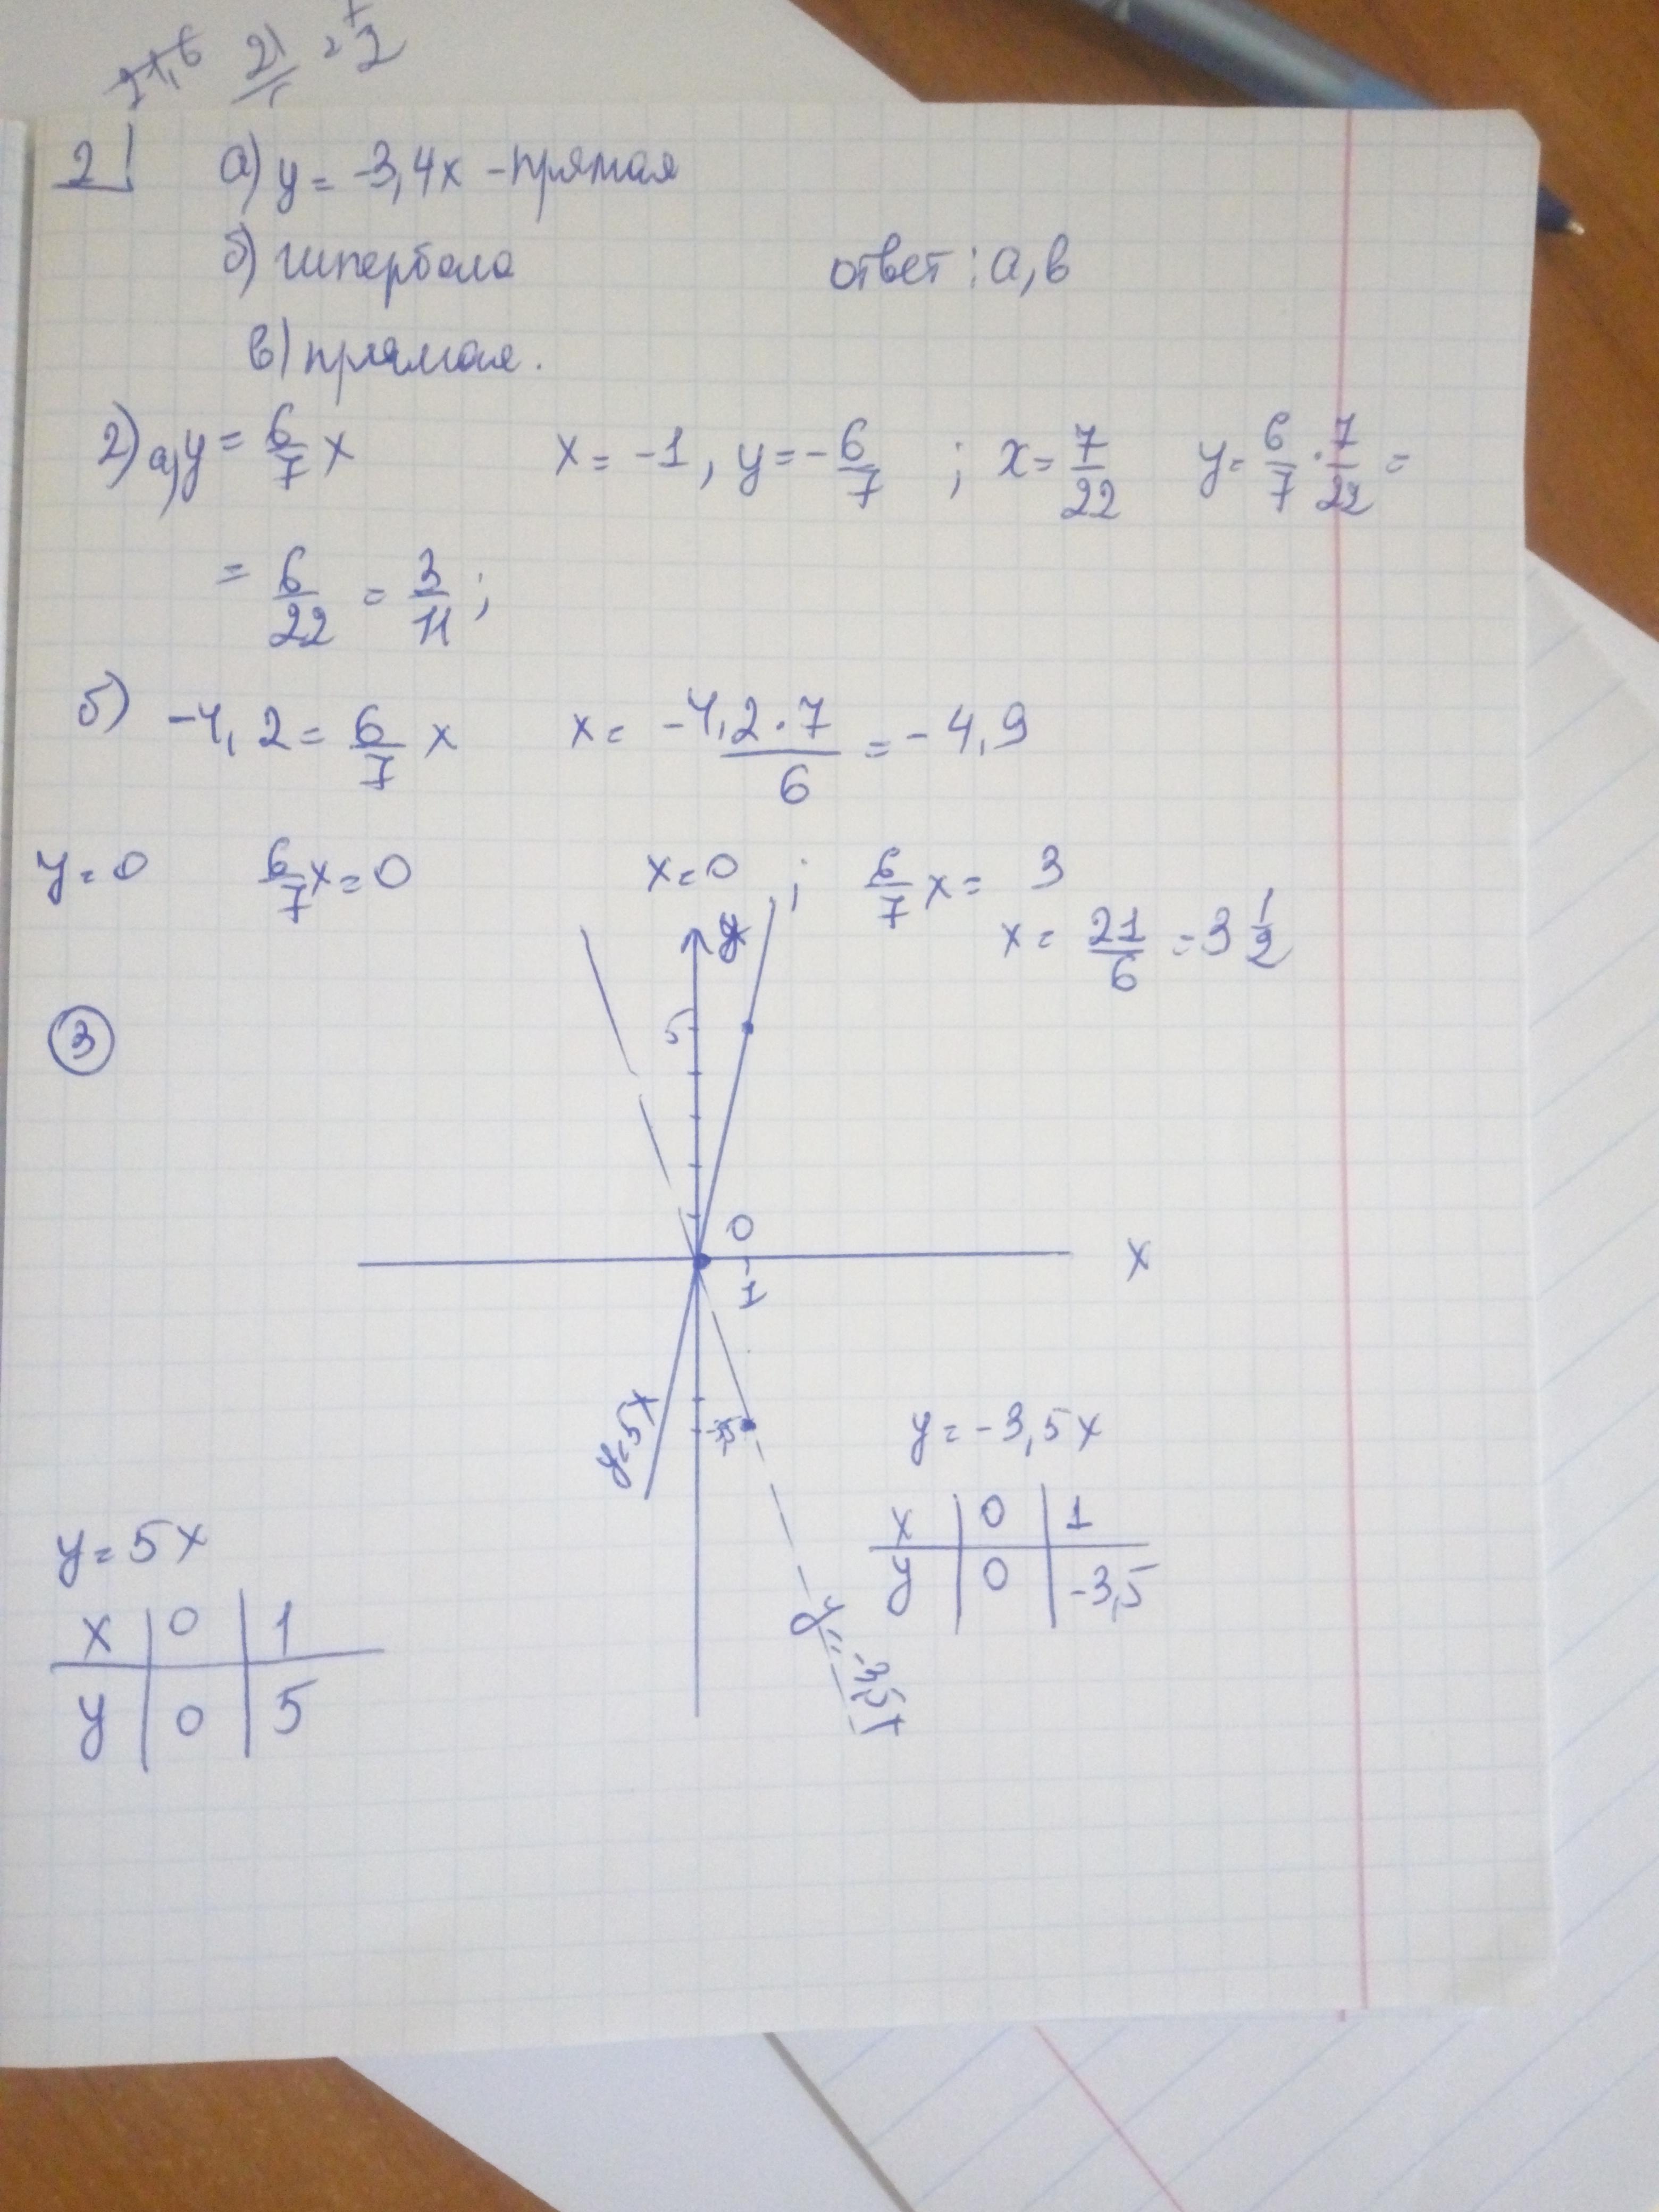 21/ = 7/2
2 а) y = -3,4x - прямая
б) гипербола
ответ: а, в
в) прямая.
2) а) y = 6/7 x x = -1, y = -6/7 ; x = 7/22 y = 6/7 · 7/22 =
= 6/22 = 3/11 ;
б) -4,2 = 6/7 x x = -4,2·7/6 = -4,9
y = 0 6/7 x = 0 x = 0 ; 6/7 x = 3
x = 21/6 = 3 1/2
y
3
5
0
x
1
y=5x
-3,5
y = -3,5x
x 0 1
y 0 -3,5
y=-3,5x
y = 5x
x 0 1
y 0 5